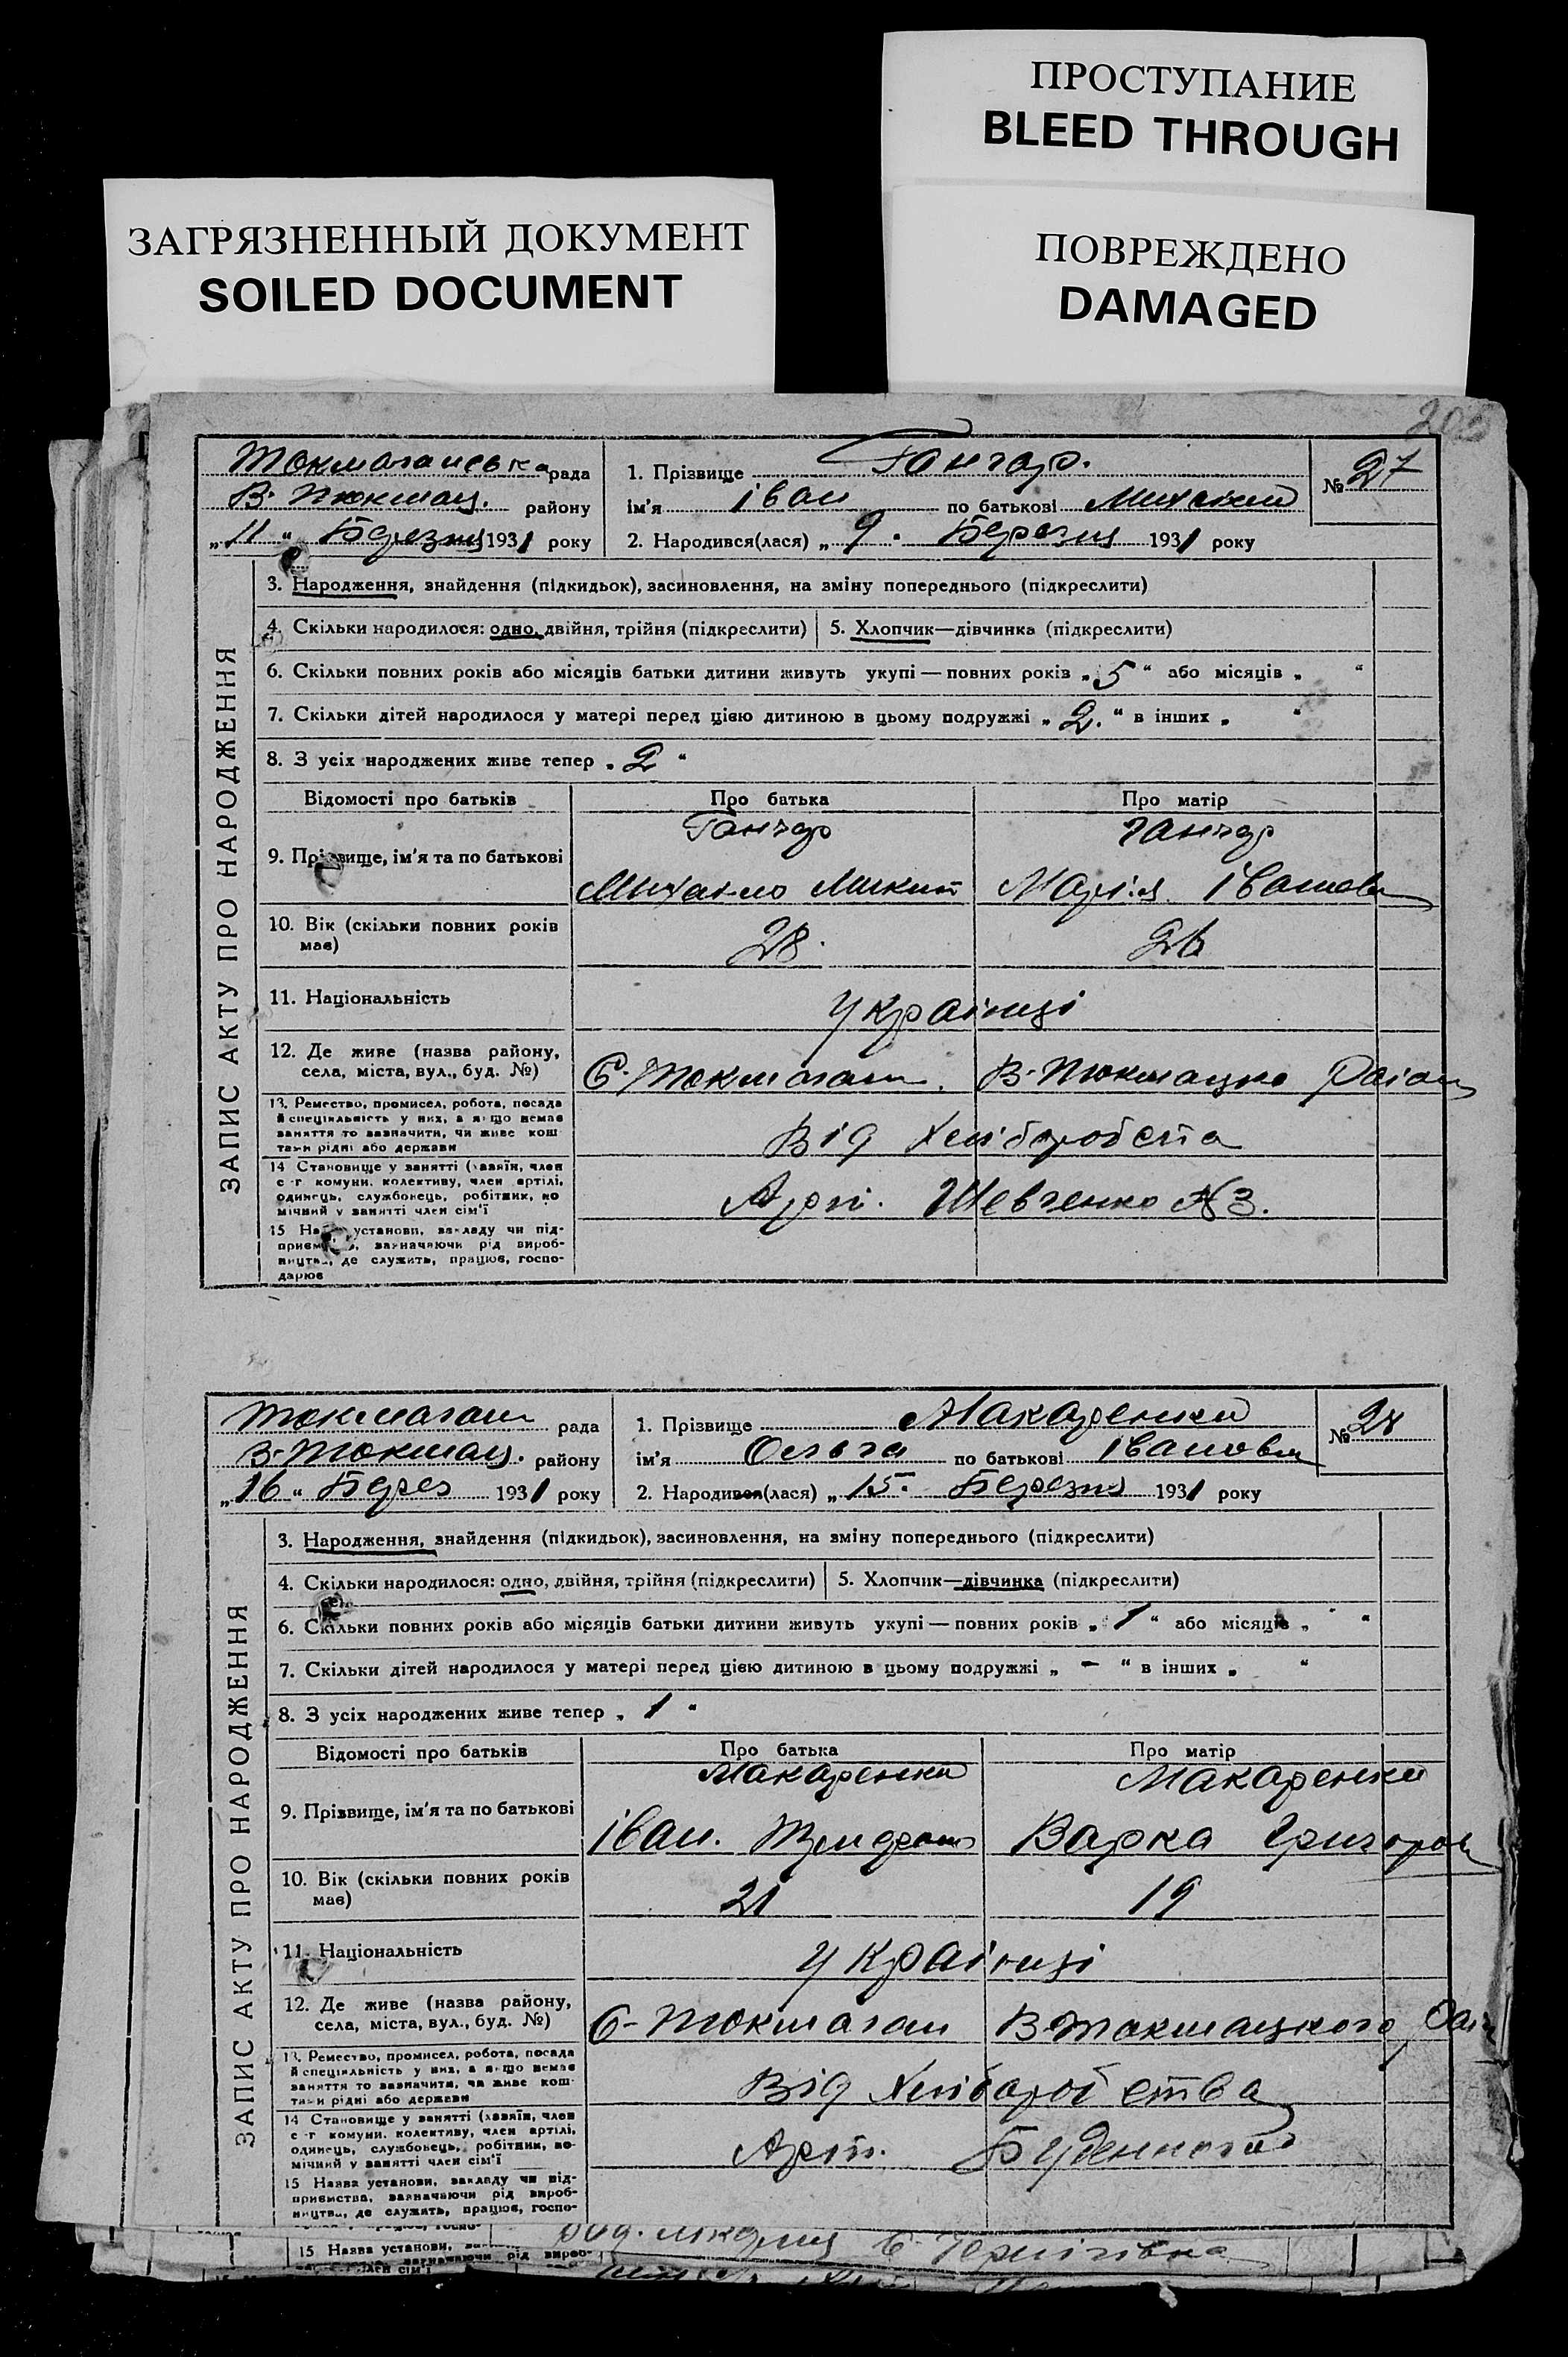 ПРОСТУПАНИЕ
BLEED THROUGH
ЗАГРЯЗНЕННЫЙ ДОКУМЕНТ
SOILED DOCUMENT
ПОВРЕЖДЕНО
DAMAGED
Токмачанська рада
В. Токмац. району
„ 11 “ Березня 1931 року
1. Прізвище Гончар.
ім'я Іван по батькові
2. Народився(лася) „ 9. Березня 1931 року
№ 27
ЗАПИС АКТУ ПРО НАРОДЖЕННЯ
3. Народження, знайдення (підкидьок), засиновлення, на зміну попереднього (підкреслити)
4. Скільки народилося: одно, двійня, трійня (підкреслити) 5. Хлопчик—дівчинка (підкреслити)
6. Скільки повних років або місяців батьки дитини живуть укупі — повних років „ 5 “ або місяців „ “
7. Скільки дітей народилося у матері перед цією дитиною в цьому подружжі „ 2. “ в інших „ “
8. З усіх народжених живе тепер „ 2 “
Відомості про батьків Про батька Про матір
Гончар Гончар
9. Прізвище, ім'я та по батькові
Михайло Микит Марія Іванова
10. Вік (скільки повних років має)
28. 26
11. Національність
Українці
12. Де живе (назва району, села, міста, вул., буд. №)
С. Токмачан. В. Токмацько Район
13. Ремество, промисел, робота, посада й спеціяльність у них, а якщо немає заняття то зазначити, чи живе коштами рідні або держави
Від хліборобста
14 Становище у занятті (хазяїн, член с-г комуни, колективу, член артілі, одинець, службовець, робітник, помічний у занятті член сім'ї
Арт. Шевченко №3.
15 Назва установи, закладу чи підприємства, зазначаючи рід виробництва, де служить, працює, господарює
Токмачан рада
В. Токмац. району
„ 16 “ Берез 1931 року
1. Прізвище Макаренко
ім'я Ольга по батькові Іванова
2. Народився(лася) „ 15. Березня 1931 року
№ 28
ЗАПИС АКТУ ПРО НАРОДЖЕННЯ
3. Народження, знайдення (підкидьок), засиновлення, на зміну попереднього (підкреслити)
4. Скільки народилося: одно, двійня, трійня (підкреслити) 5. Хлопчик—дівчинка (підкреслити)
6. Скільки повних років або місяців батьки дитини живуть укупі — повних років „ 1 “ або місяців „ “
7. Скільки дітей народилося у матері перед цією дитиною в цьому подружжі „ – “ в інших „ “
8. З усіх народжених живе тепер „ 1 “
Відомості про батьків Про батька Про матір
Макаренко Макаренко
9. Прізвище, ім'я та по батькові
Іван. Варка Григоров
10. Вік (скільки повних років має)
21 19
11. Національність
Українці
12. Де живе (назва району, села, міста, вул., буд. №)
С-Токмачан В-Токмацького
13. Ремество, промисел, робота, посада й спеціяльність у них, а якщо немає заняття то зазначити, чи живе коштами рідні або держави
Від хліборобства
14 Становище у занятті (хазяїн, член с-г комуни, колективу, член артілі, одинець, службовець, робітник, помічний у занятті член сім'ї
Арт. Буденного
15 Назва установи, закладу чи підприємства, зазначаючи рід виробництва, де служить, працює, господарює
15 Назва установи,